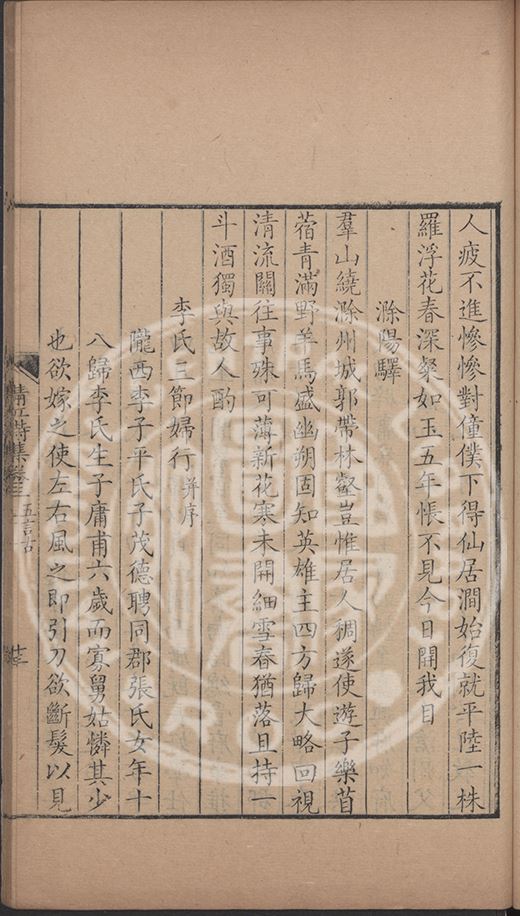 人疲不進慘慘對僮僕下得仙居澗始復就平陸一株
羅浮花春深粲如玉五年悵不見今日開我目
滁陽驛
羣山繞滁州城郭帶林壑豈惟居人稠遂使遊子樂苜
蓿青滿野羊馬盛幽朔固知英雄主四方歸大略回視
清流關往事殊可薄新花寒未開細雪春猶落且持一
斗酒獨與故人酌
李氏三節婦行并序
隴西李子平氏子茂德聘同郡張氏女年十
八歸李氏生子庸甫六歲而寡舅姑憐其少
也欲嫁之使左右風之即引刀欲斷髮以見
清江詩集卷三 五言古